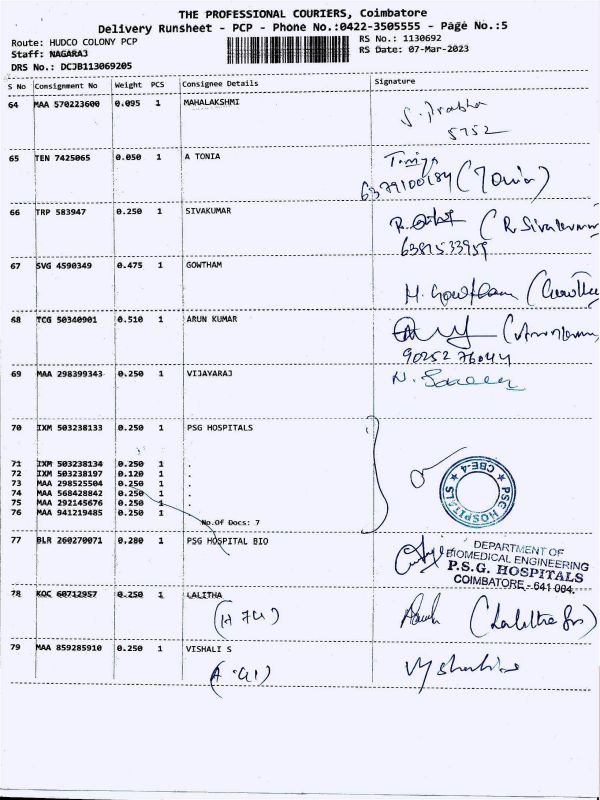 THE PROFESSIONAL COURIERS, Coimbatore
Delivery Runsheet - PCP - Phone No.:0422-3505555 - Page No.:5
Route: HUDCO COLONY PCP
RS No.: 1130692
Staff: NAGARAJ
RS Date: 07-Mar-2023
DRS No.: DCJB113069205
S No Consignment No Weight PCS Consignee Details Signature
64 MAA 570223600 0.095 1 MAHALAKSHMI
S. Prabha
5752
65 TEN 7425065 0.050 1 A TONIA
6379100184 (Tonia)
66 TRP 583947 0.250 1 SIVAKUMAR
(R Sivakumar
6381533959
67 SVG 4590349 0.475 1 GOWTHAM
M. Gowtham (Gowtham
68 TCG 50340901 0.510 1 ARUN KUMAR
(Arunkumar
90252 76044
69 MAA 298399343 0.250 1 VIJAYARAJ
70 IXM 503238133 0.250 1 PSG HOSPITALS
71 IXM 503238134 0.250 1 .
72 IXM 503238197 0.120 1 .
73 MAA 298525504 0.250 1 .
74 MAA 568428842 0.250 1 .
75 MAA 292145676 0.250 1 .
76 MAA 941219485 0.250 1 .
No.Of Docs: 7
PSG HOSPITALS
CBE-4
77 BLR 260270071 0.280 1 PSG HOSPITAL BIO
DEPARTMENT OF
BIOMEDICAL ENGINEERING
P.S.G. HOSPITALS
COIMBATORE - 641 004.
78 KOC 60712957 0.250 1 LALITHA
(H 74)
79 MAA 859285910 0.250 1 VISHALI S